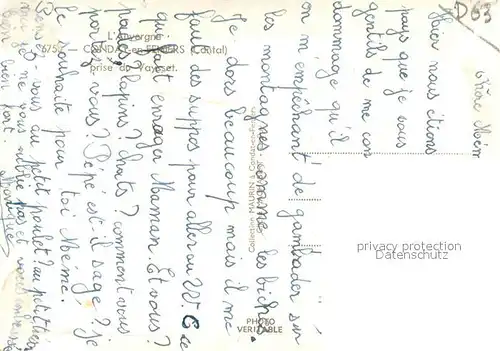 Chère Mém
Hier nous étions
pays que je vous
gentils de me con
dommage qu'il
on m'empêchant de gambader sur
les montagnes comme les biches.
Je dors beaucoup mais il me
faut des suppos pour aller au W.C ce
qui fait enrager Maman. Et vous?
lapins? chats? comment vous
portez vous? Pépé est-il sage? je
le souhaite pour toi Mémé.
Pensez-vous au petit poulet? au petit
je ne vous oublie pas et vous embrasse
bien fort.
Monique
L'Auvergne
675
CONDAT-en-FENIERS (Cantal)
prise du Veysset.
Collection MAURIN à Condat-en-Feniers
PHOTO
VERITABLE
D 63
privacy protection
DATENSCHUTZ